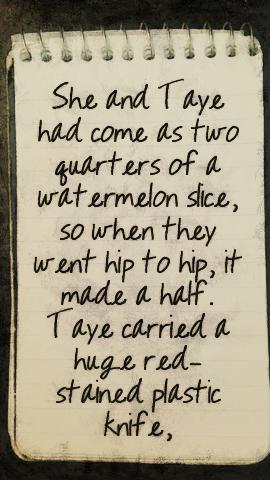 She and Taye
had come as two
quarters of a
watermelon slice,
so when they
went hip to hip, it
made a half.
Taye carried a
huge red-
stained plastic
knife,